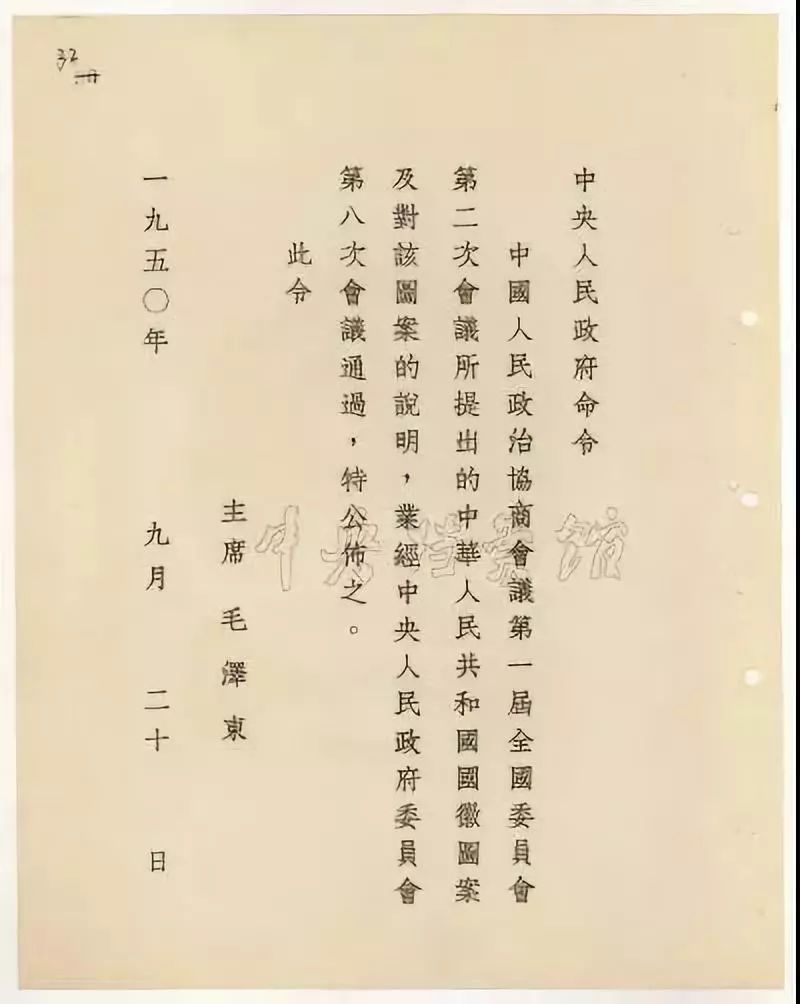 32
中央人民政府命令
中國人民政治協商會議第一屆全國委員會
第二次會議所提出的中華人民共和國國徽圖案
及對該圖案的說明，業經中央人民政府委員會
第八次會議通過，特公佈之。
此令
主席 毛澤東
一九五〇年 九月 二十 日
中央档案馆